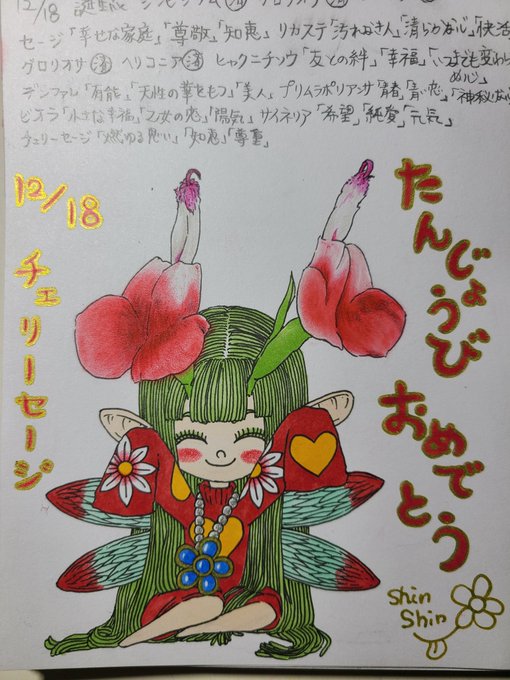 12/18 誕生花 シンビジウム㊡ グロリオサ㊡
セージ「幸せな家庭」「尊敬」「知恵」 リカステ「汚れなき人」「清らかな心」「快活
グロリオサ㊡ ヘリコニア㊡ ヒャクニチソウ「友との絆」「幸福」「いつまでも変わらぬ心」
デンファレ「有能」「天性の華をもつ」「美人」 プリムラポリアンサ「青春」「青い恋」「神秘な心
ビオラ「小さな幸福」「乙女の恋」「陽気」 サイネリア「希望」「純愛」「元気」
チェリーセージ「燃ゆる思い」「知恵」「尊重」
12/18
チェリーセージ
たんじょうび
おめでとう
Shin
Shin